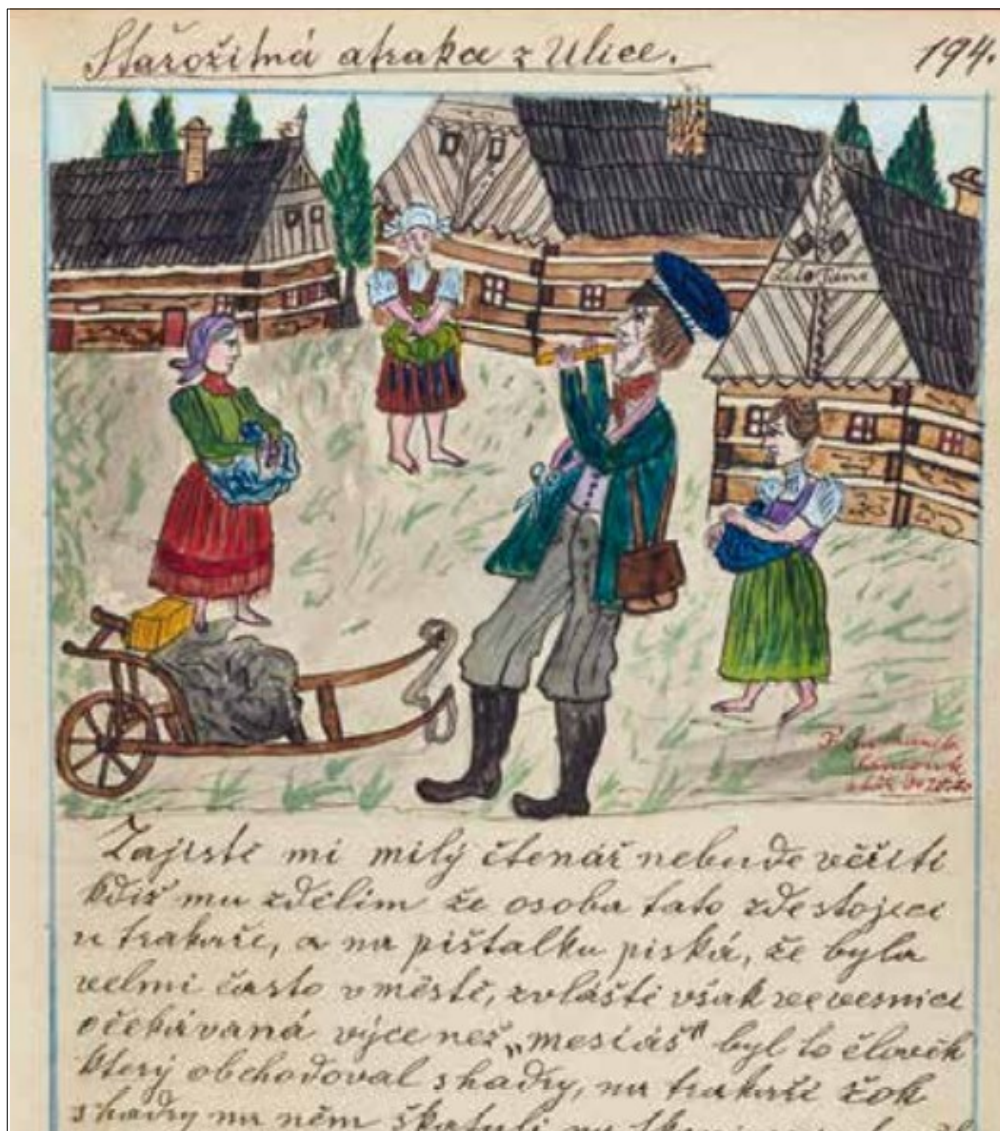 Starožitná atrakce z Ulice. 194.
Zajisté mi milý čtenář nebude věřiti
kdiš mu zdělím že osoba tato zde stojeci
u trakaře, a na pištalku píská, že byla
velmi často v městě, zvláště však ve vesnici
očekávaná výce než „mesiáš" byl to člověk
který obchodoval s hadry, na trakaři žok
s hadry na něm škatuli